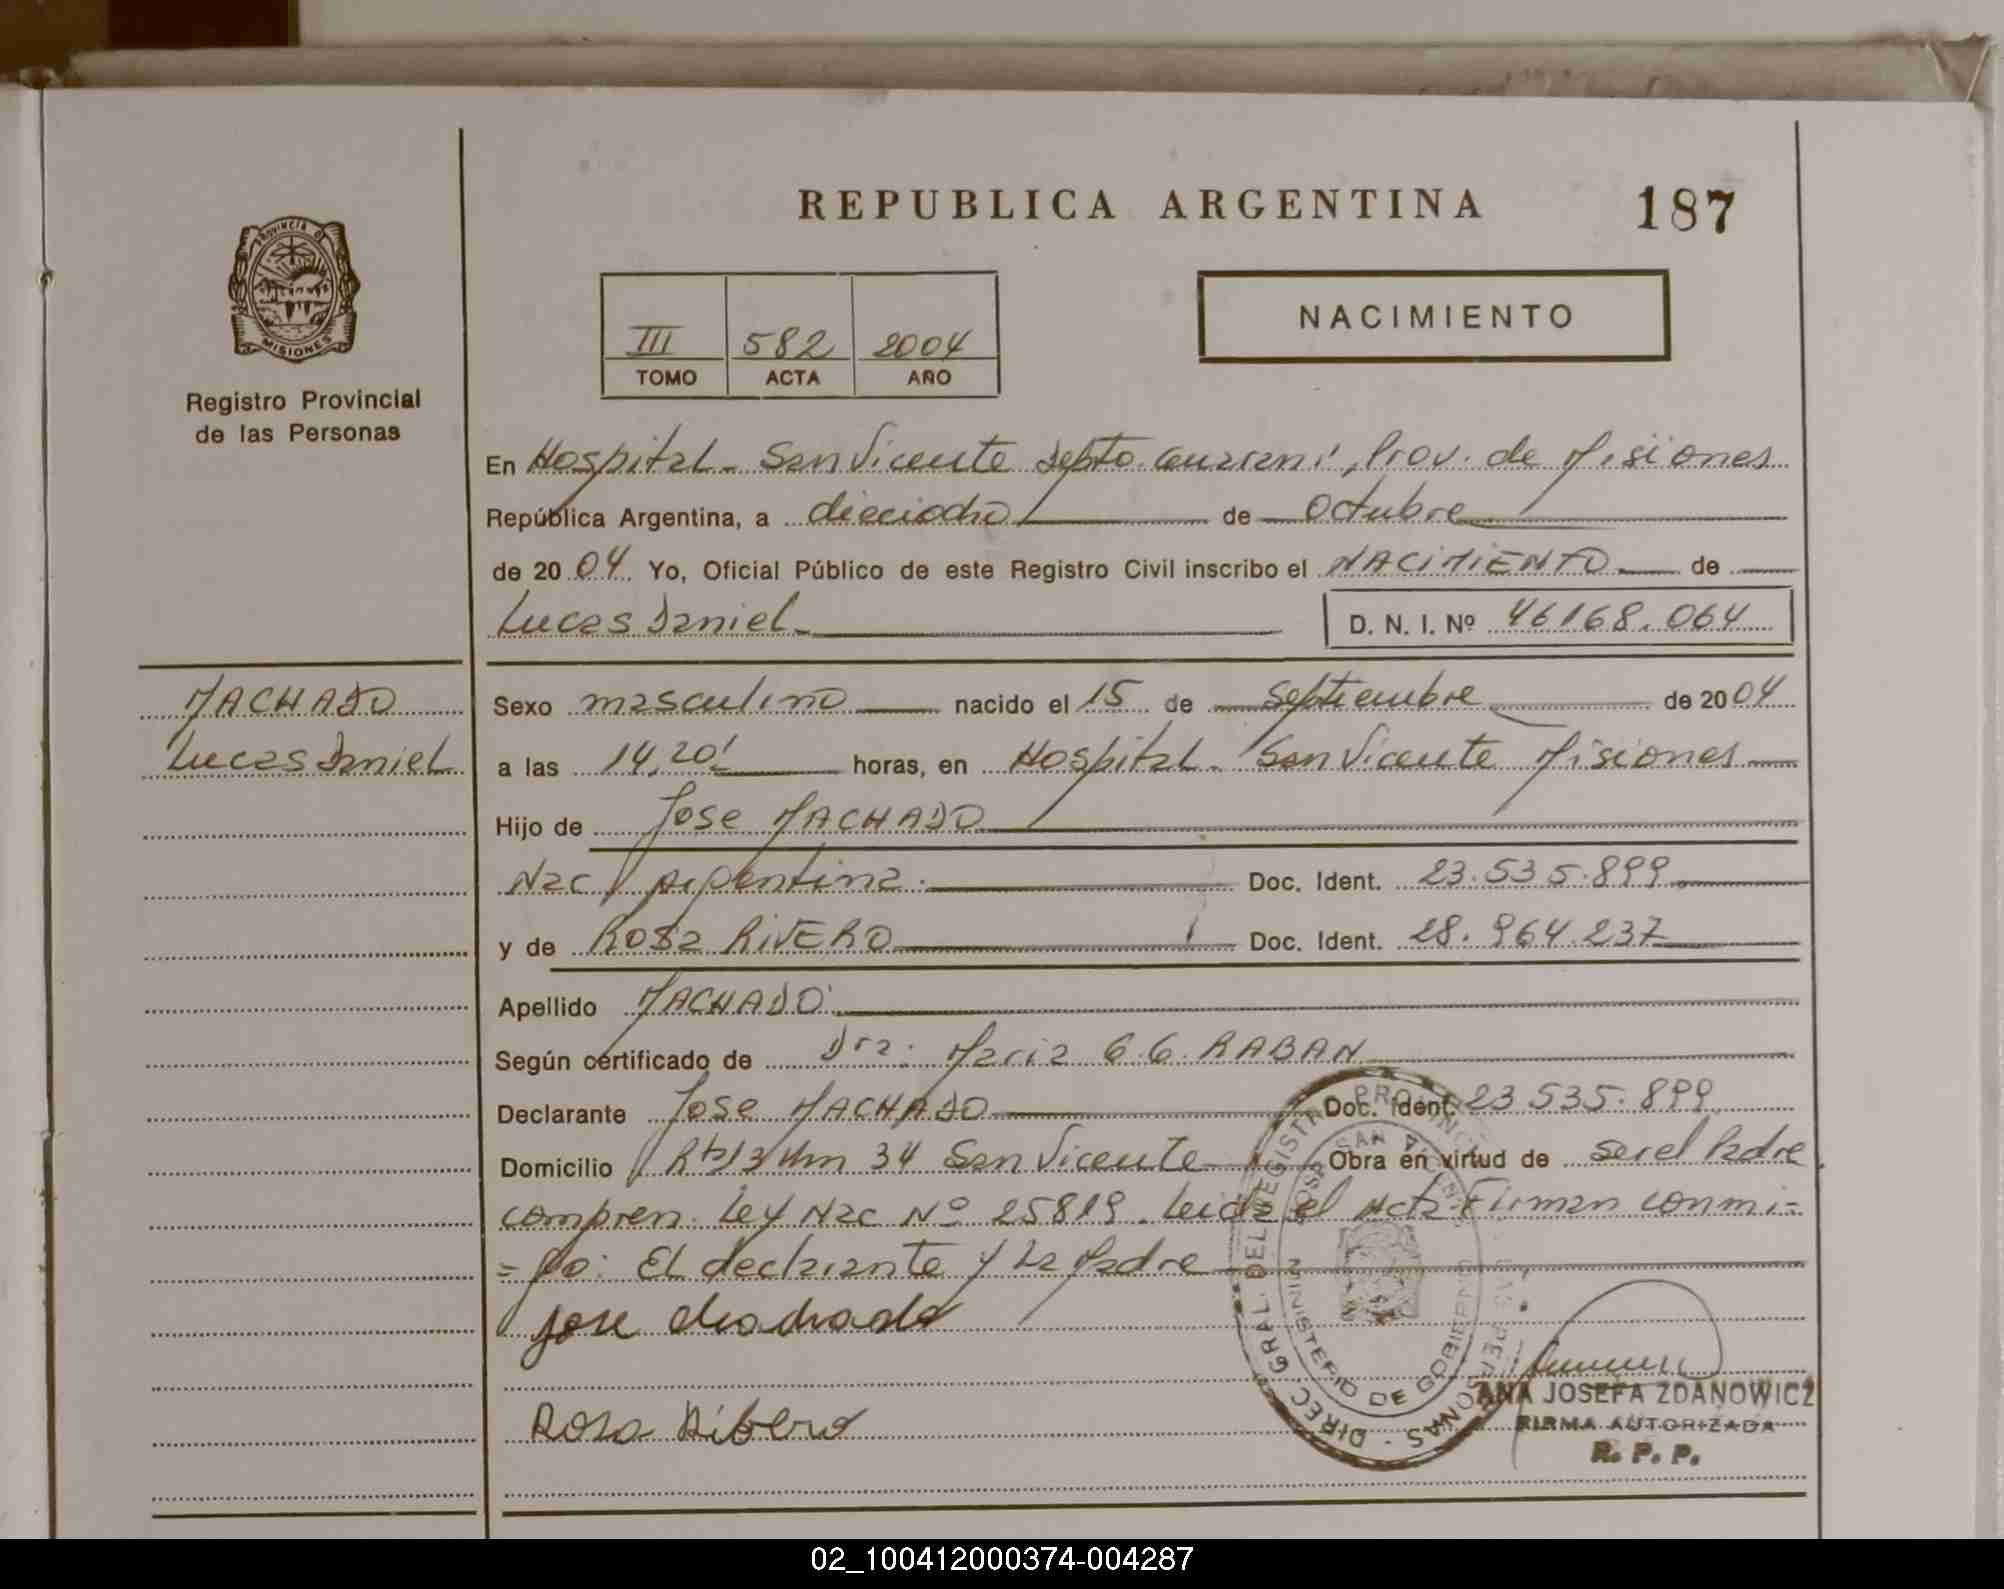 REPUBLICA ARGENTINA 187
PROVINCIA DE
MISIONES
Registro Provincial
de las Personas
III 582 2004
TOMO ACTA AÑO
NACIMIENTO
En Hospital - San Vicente Depto. Guarani, Prov. de Misiones
República Argentina, a dieciocho de Octubre
de 2004 Yo, Oficial Público de este Registro Civil inscribo el NACIMIENTO de
Lucas Daniel D. N. I. Nº 46168.064
MACHADO
Lucas Daniel
Sexo masculino nacido el 15 de Septiembre de 2004
a las 14,20' horas, en Hospital - San Vicente Misiones
Hijo de Jose MACHADO
Nac Argentina. Doc. Ident. 23.535.899
y de Rosa RIVERO Doc. Ident. 28.964.237
Apellido MACHADO
Según certificado de Dra. Maria G.G. RABAN
Declarante Jose MACHADO Doc. Ident. 23 535.899
Domicilio Rta 13 Km 34 San Vicente Obra en virtud de ser el Padre
compren. Ley Nac Nº 25819. Leida el Acta Firman conmi=
=go: El declarante y La Madre
Jose Machado
Rosa Ribero
DIREC. GRAL. DEL REGISTRO PROVINCIAL DE LAS PERSONAS -
MINISTERIO DE GOBIERNO
ANA JOSEFA ZDANOWICZ
FIRMA AUTORIZADA
R. P. P.
02_100412000374-004287